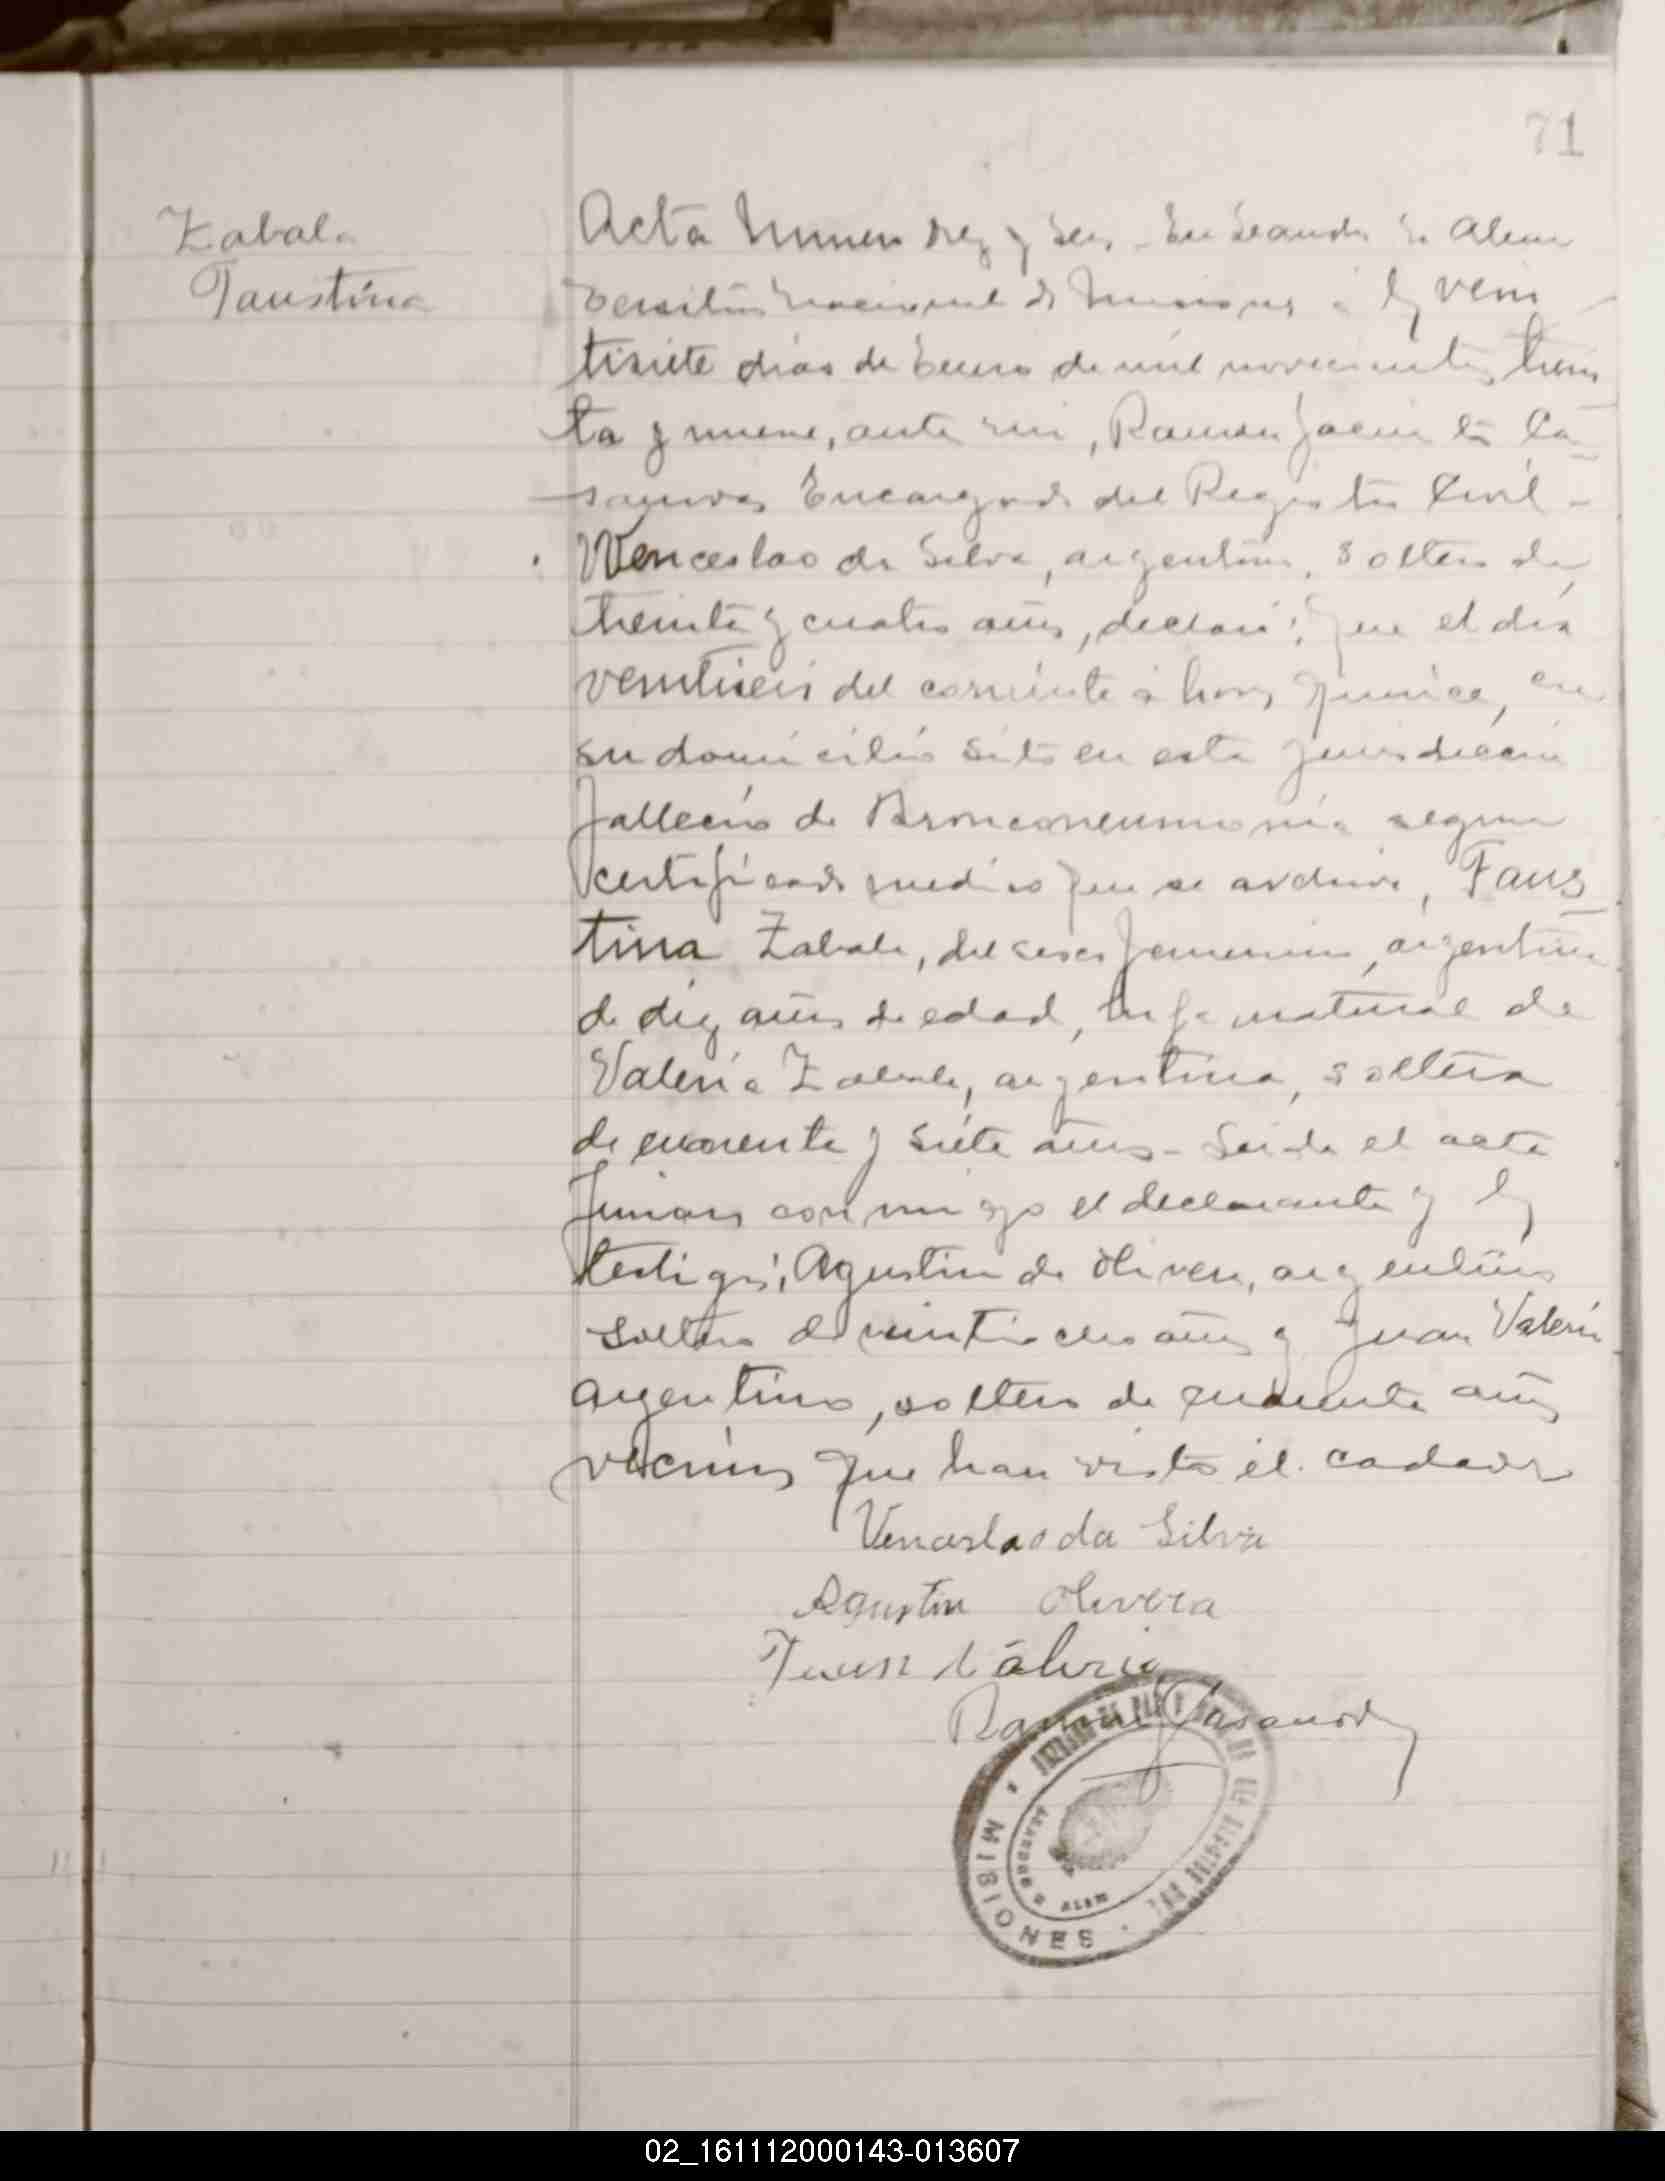 71
Zabala
Faustina
Acta Numero diez y seis. En Leandro N. Alem
Territorio Nacional de Misiones a los vein
tisiete dias de Enero de mil novecientos trein
ta y nueve, ante mi, Ramon
Encargado del Registro Civil -
Wenceslao da Silva, argentino, soltero de
treinta y cuatro años, declaró: Que el dia
veintiseis del corriente a horas quince, en
su domicilio sito en esta jurisdiccion
fallecio de Bronconeumonia segun
certificado medico que se archiva, Faus
tina Zabala, del sexo femenino, argentina
de diez años de edad, hija natural de
Valeria Zabala, argentina, soltera
de cuarenta y siete años - Leida el acta
firman conmigo el declarante y los
testigos; Agustin de Olivera, argentino
soltero de veintiocho años y Juan Valerio
argentino, soltero de cuarenta años
vecinos que han visto el cadaver
Venceslao da Silva
Agustin Olivera
Juan Valerio
Ramon Casanova
MISIONES
ALEM
02_161112000143-013607